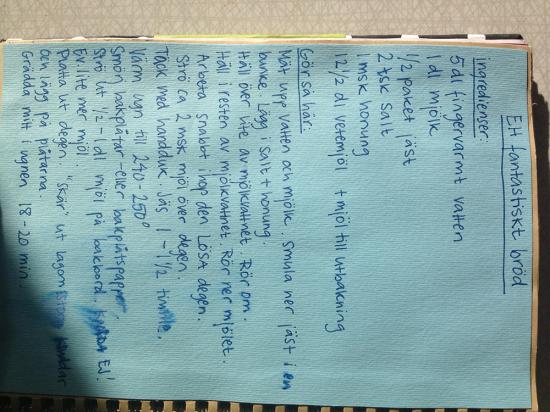 Ett fantastiskt bröd
ingredienser:
5 dl fingervarmt vatten
1 dl mjölk
1/2 paket jäst
2 tsk salt
1 msk honung
12 1/2 dl vetemjöl + mjöl till utbakning
Gör så här:
Mät upp vatten och mjölk. Smula ner jäst i en
bunke. Lägg i salt + honung.
Häll över lite av mjölkvattnet. Rör om.
Häll i resten av mjölkvattnet. Rör ner mjölet.
Arbeta snabbt ihop den LÖSA degen.
Strö ca 2 msk mjöl över degen.
Täck med handduk. Jäs 1 - 1 1/2 timme.
Värm ugn till 240-250°
Smörj bakplåtar eller bakplåtspapper.
Strö ut 1/2 - 1 dl mjöl på bakbord. KNÅDA EJ!
Ev. lite mer mjöl.
Platta ut degen. "skär" ut lagom
och lägg på plåtarna.
Grädda mitt i ugnen 18-20 min.